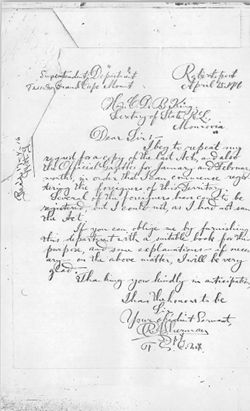 Superintendent's Department
Robertsport
Territory Grand Cape Mount
April 25, 1916
Hon. C. D. B. King,
Secretary of State, R. L.
Monrovia
Dear Sir:
I beg to repeat my
request for a copy of the last Acts, and also
the Official Gazette for January and February
months, in order that I can commence
the foreigners of this Territory.
Several of the foreigners have come to be
registered, but I could not, as I had not seen
the Act.
If you can oblige me by furnishing
this department with a suitable book for this
purpose and some explanations if neces
sary on the above matter, I will be very
glad.
Thanking you kindly in anticipation
I have the honor to be
Sir,
Your obedient Servant,